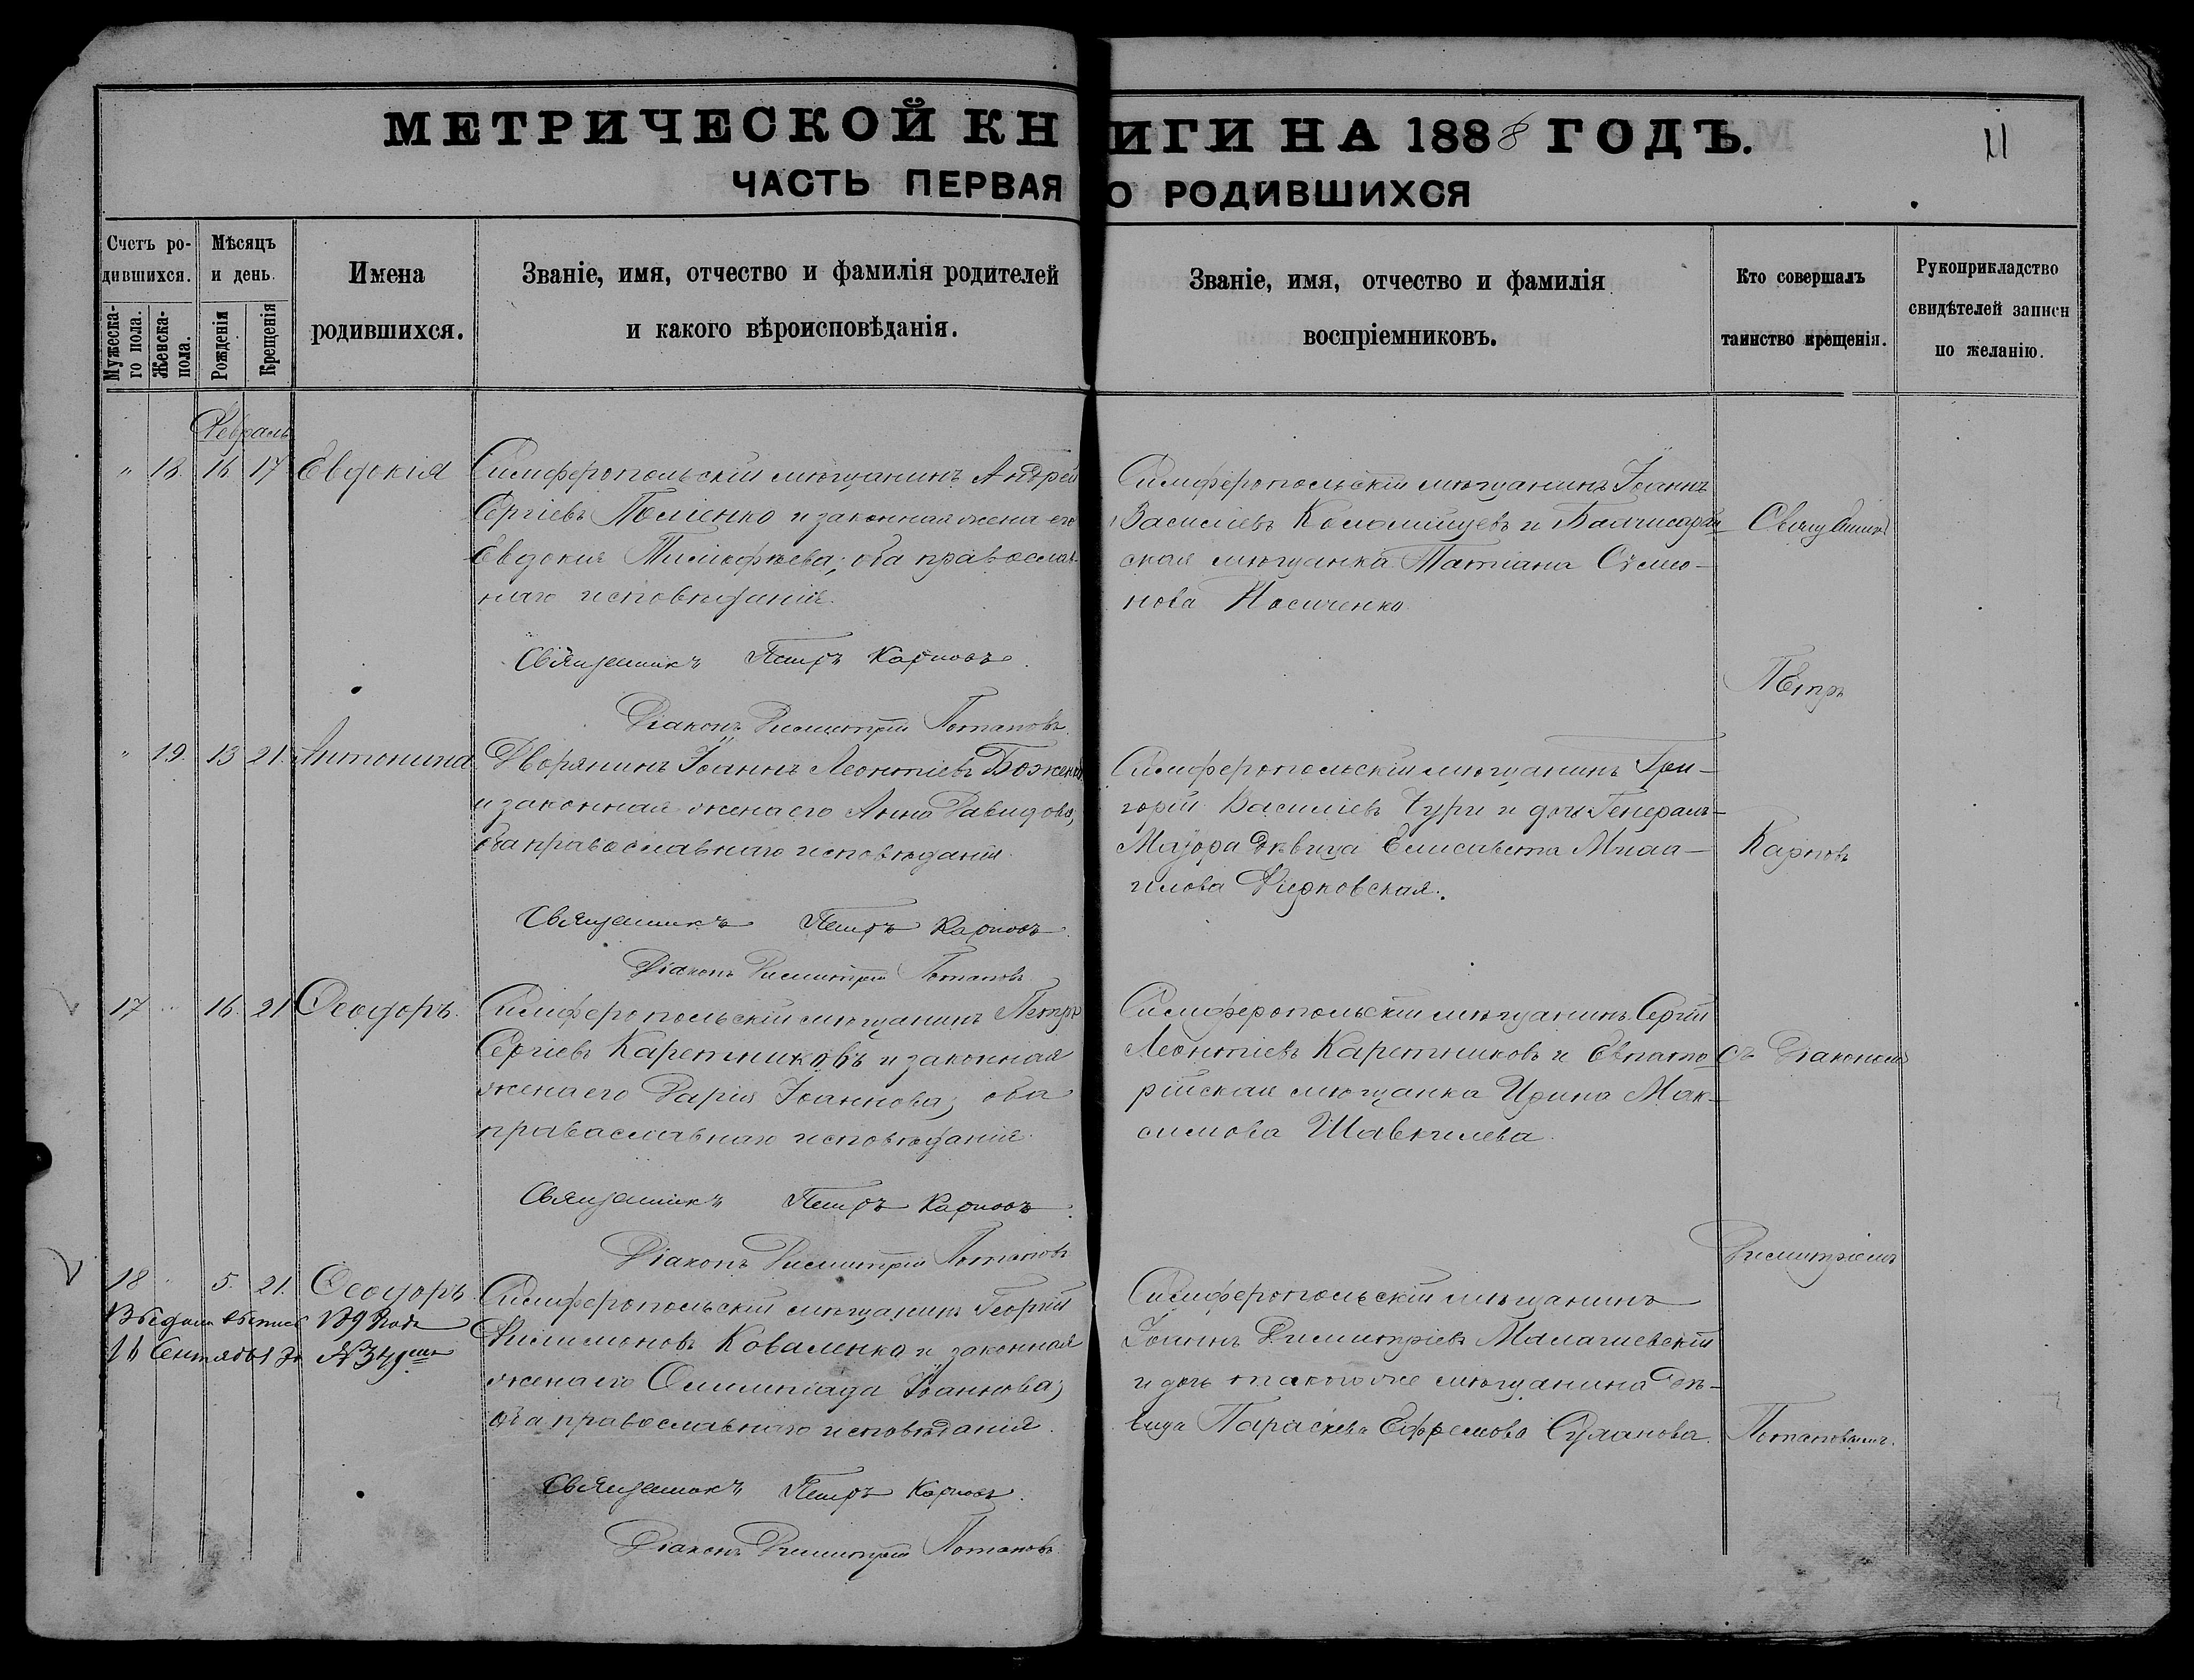 МЕТРИЧЕСКОЙ КНИГИ НА 1888 ГОДЪ.
11
ЧАСТЬ ПЕРВАЯ О РОДИВШИХСЯ
Счетъ ро-
дившихся.
Мужеска-
го пола.
Женска-
пола.
Мѣсяцъ
и день.
Рожденія
Крещенія
Имена
родившихся.
Званіе, имя, отчество и фамилія родителей
и какого вѣроисповѣданія.
Званіе, имя, отчество и фамилія
воспріемниковъ.
Кто совершалъ
таинство крещенія.
Рукоприкладство
свидѣтелей записи
по желанію.
Февраль
" 18. 16 17 Евдокія
Симферопольскій мѣщанинъ Андрей
Сергіевъ Поліенко и законная жена его
Евдокія Тимофѣева; оба православ-
наго исповѣданія.
Священникъ Петръ Карповъ.
Діаконъ Димитрій Потаповъ.
Симферопольскій мѣщанинъ Іоаннъ
Василіевъ Коломійцевъ и Бахчисарай-
ская мѣщанка Татіана Симо-
нова Носиченко
Священникъ
Петръ
" 19. 13 21. Антонина
Дворянинъ Іоаннъ Леонтіевъ Боженко
и законная жена его Анна Давидова,
оба православнаго исповѣданія.
Священникъ Петръ Карповъ.
Діаконъ Димитрій Потаповъ
Симферопольскій мѣщанинъ Гри-
горій Василіевъ Чупи и дочь Генералъ-
Маіора дѣвица Елисавета Миха-
илова
Карповъ
17 " 16. 21 Ѳеодоръ.
Симферопольскій мѣщанинъ Петръ
Сергіевъ Каретниковъ и законная
жена его Дарія Іоаннова; оба
православнаго исповѣданія.
Священникъ Петръ Карповъ.
Діаконъ Димитрій Потаповъ
Симферопольскій мѣщанинъ Сергій
Леонтіевъ Каретниковъ и Евпато-
рійская мѣщанка Ирина Мак-
симова Шавкилева.
съ Діакономъ
Димитріемъ
18 " 5. 21. Ѳеодоръ.
16 Сентября
Симферопольскій мѣщанинъ Георгій
Филимоновъ Коваленко и законная
жена его Олимпіада Іоаннова;
оба православнаго исповѣданія.
Священникъ Петръ Карповъ.
Діаконъ Димитрій Потаповъ.
Симферопольскій мѣщанинъ
Іоаннъ Димитріевъ Малашевскій
и дочь такого же мѣщанина дѣ-
вица Параскева Ефремова Суханова.
Потаповымъ.